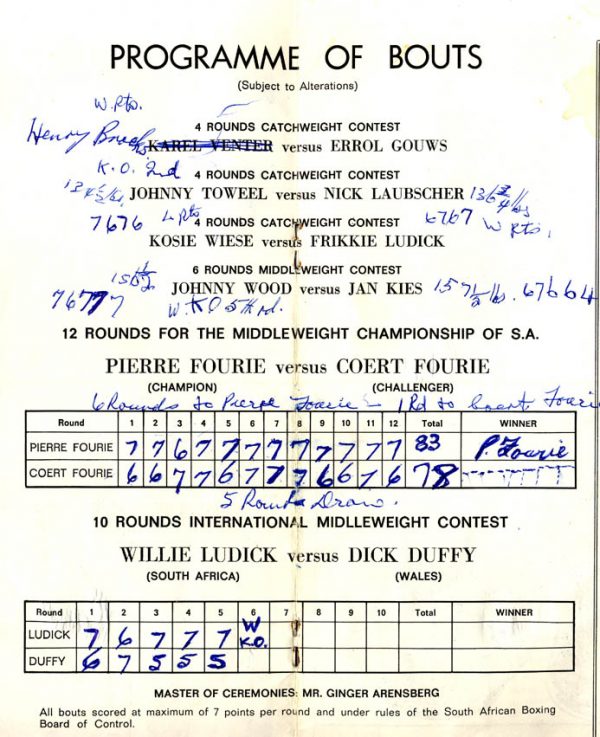 PROGRAMME OF BOUTS
(Subject to Alterations)
W. Pts.
4 ROUNDS CATCHWEIGHT CONTEST
Henry KAREL VENTER versus ERROL GOUWS
K.O. 2nd 4 ROUNDS CATCHWEIGHT CONTEST
JOHNNY TOWEEL versus NICK LAUBSCHER 136 3/4 lbs
7676 L Pts 4 ROUNDS CATCHWEIGHT CONTEST 6767 W Pts.
KOSIE WIESE versus FRIKKIE LUDICK
6 ROUNDS MIDDLEWEIGHT CONTEST
JOHNNY WOOD versus JAN KIES 157 1/2 lbs. 67664
76777 W. KO 5th rd.
12 ROUNDS FOR THE MIDDLEWEIGHT CHAMPIONSHIP OF S.A.
PIERRE FOURIE versus COERT FOURIE
(CHAMPION) (CHALLENGER)
6 Rounds to Pierre Fourie - 1 Rd to Coert Fourie
Round 1 2 3 4 5 6 7 8 9 10 11 12 Total WINNER
PIERRE FOURIE 7 7 6 7 7 7 7 7 7 7 7 7 83 P. Fourie
COERT FOURIE 6 6 7 7 6 7 7 7 6 6 7 6 78
5 Rounds Draw.
10 ROUNDS INTERNATIONAL MIDLLEWEIGHT CONTEST
WILLIE LUDICK versus DICK DUFFY
(SOUTH AFRICA) (WALES)
Round 1 2 3 4 5 6 7 8 9 10 Total WINNER
LUDICK 7 6 7 7 7 W K.O.
DUFFY 6 7 5 5 5
MASTER OF CEREMONIES: MR. GINGER ARENSBERG
All bouts scored at maximum of 7 points per round and under rules of the South African Boxing
Board of Control.